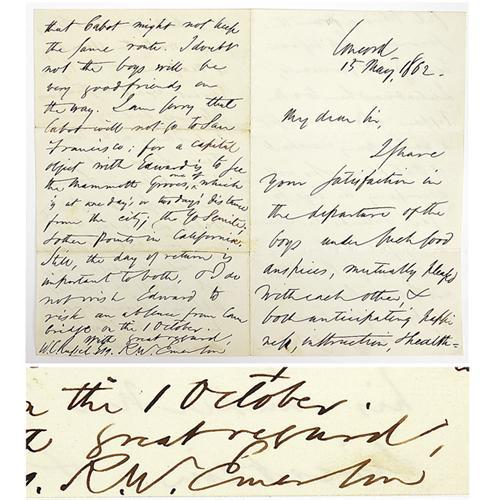 that Cabot might not keep
the same route. I doubt
not the boys will be
very good friends on
the way. I am sorry that
Cabot will not go to San
Francisco; for a capital
object with Edward is to see
the Mammoth Groves, one of which
is at one day's, or two days' distance
from the city; the Yo Semite,
& other points in California.
Still, the day of return is
important to both, & I do
not wish Edward to
risk an absence from Cam
bridge on the 1 October.
With great regard,
R. W. Emerson
Concord
15 May, 1862.
My dear Sir,
I have
your satisfaction in
the departure of the
boys under such good
auspices, mutually pleased
with each other, &
both anticipating happi
ness, instruction, & health
n the 1 October.
great regard,
R. W. Emerson